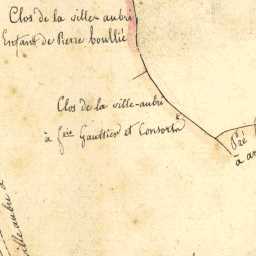 Clos de la ville aubri
Enfans de Pierre boullié
Clos de la ville-aubri
à Gme Gauttier et Consorts
Pré
à
ville aubri à